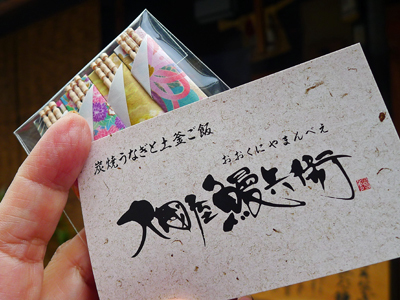 炭焼うなぎと土釜ご飯
おおくにやまんべえ
大國屋鰻兵衛